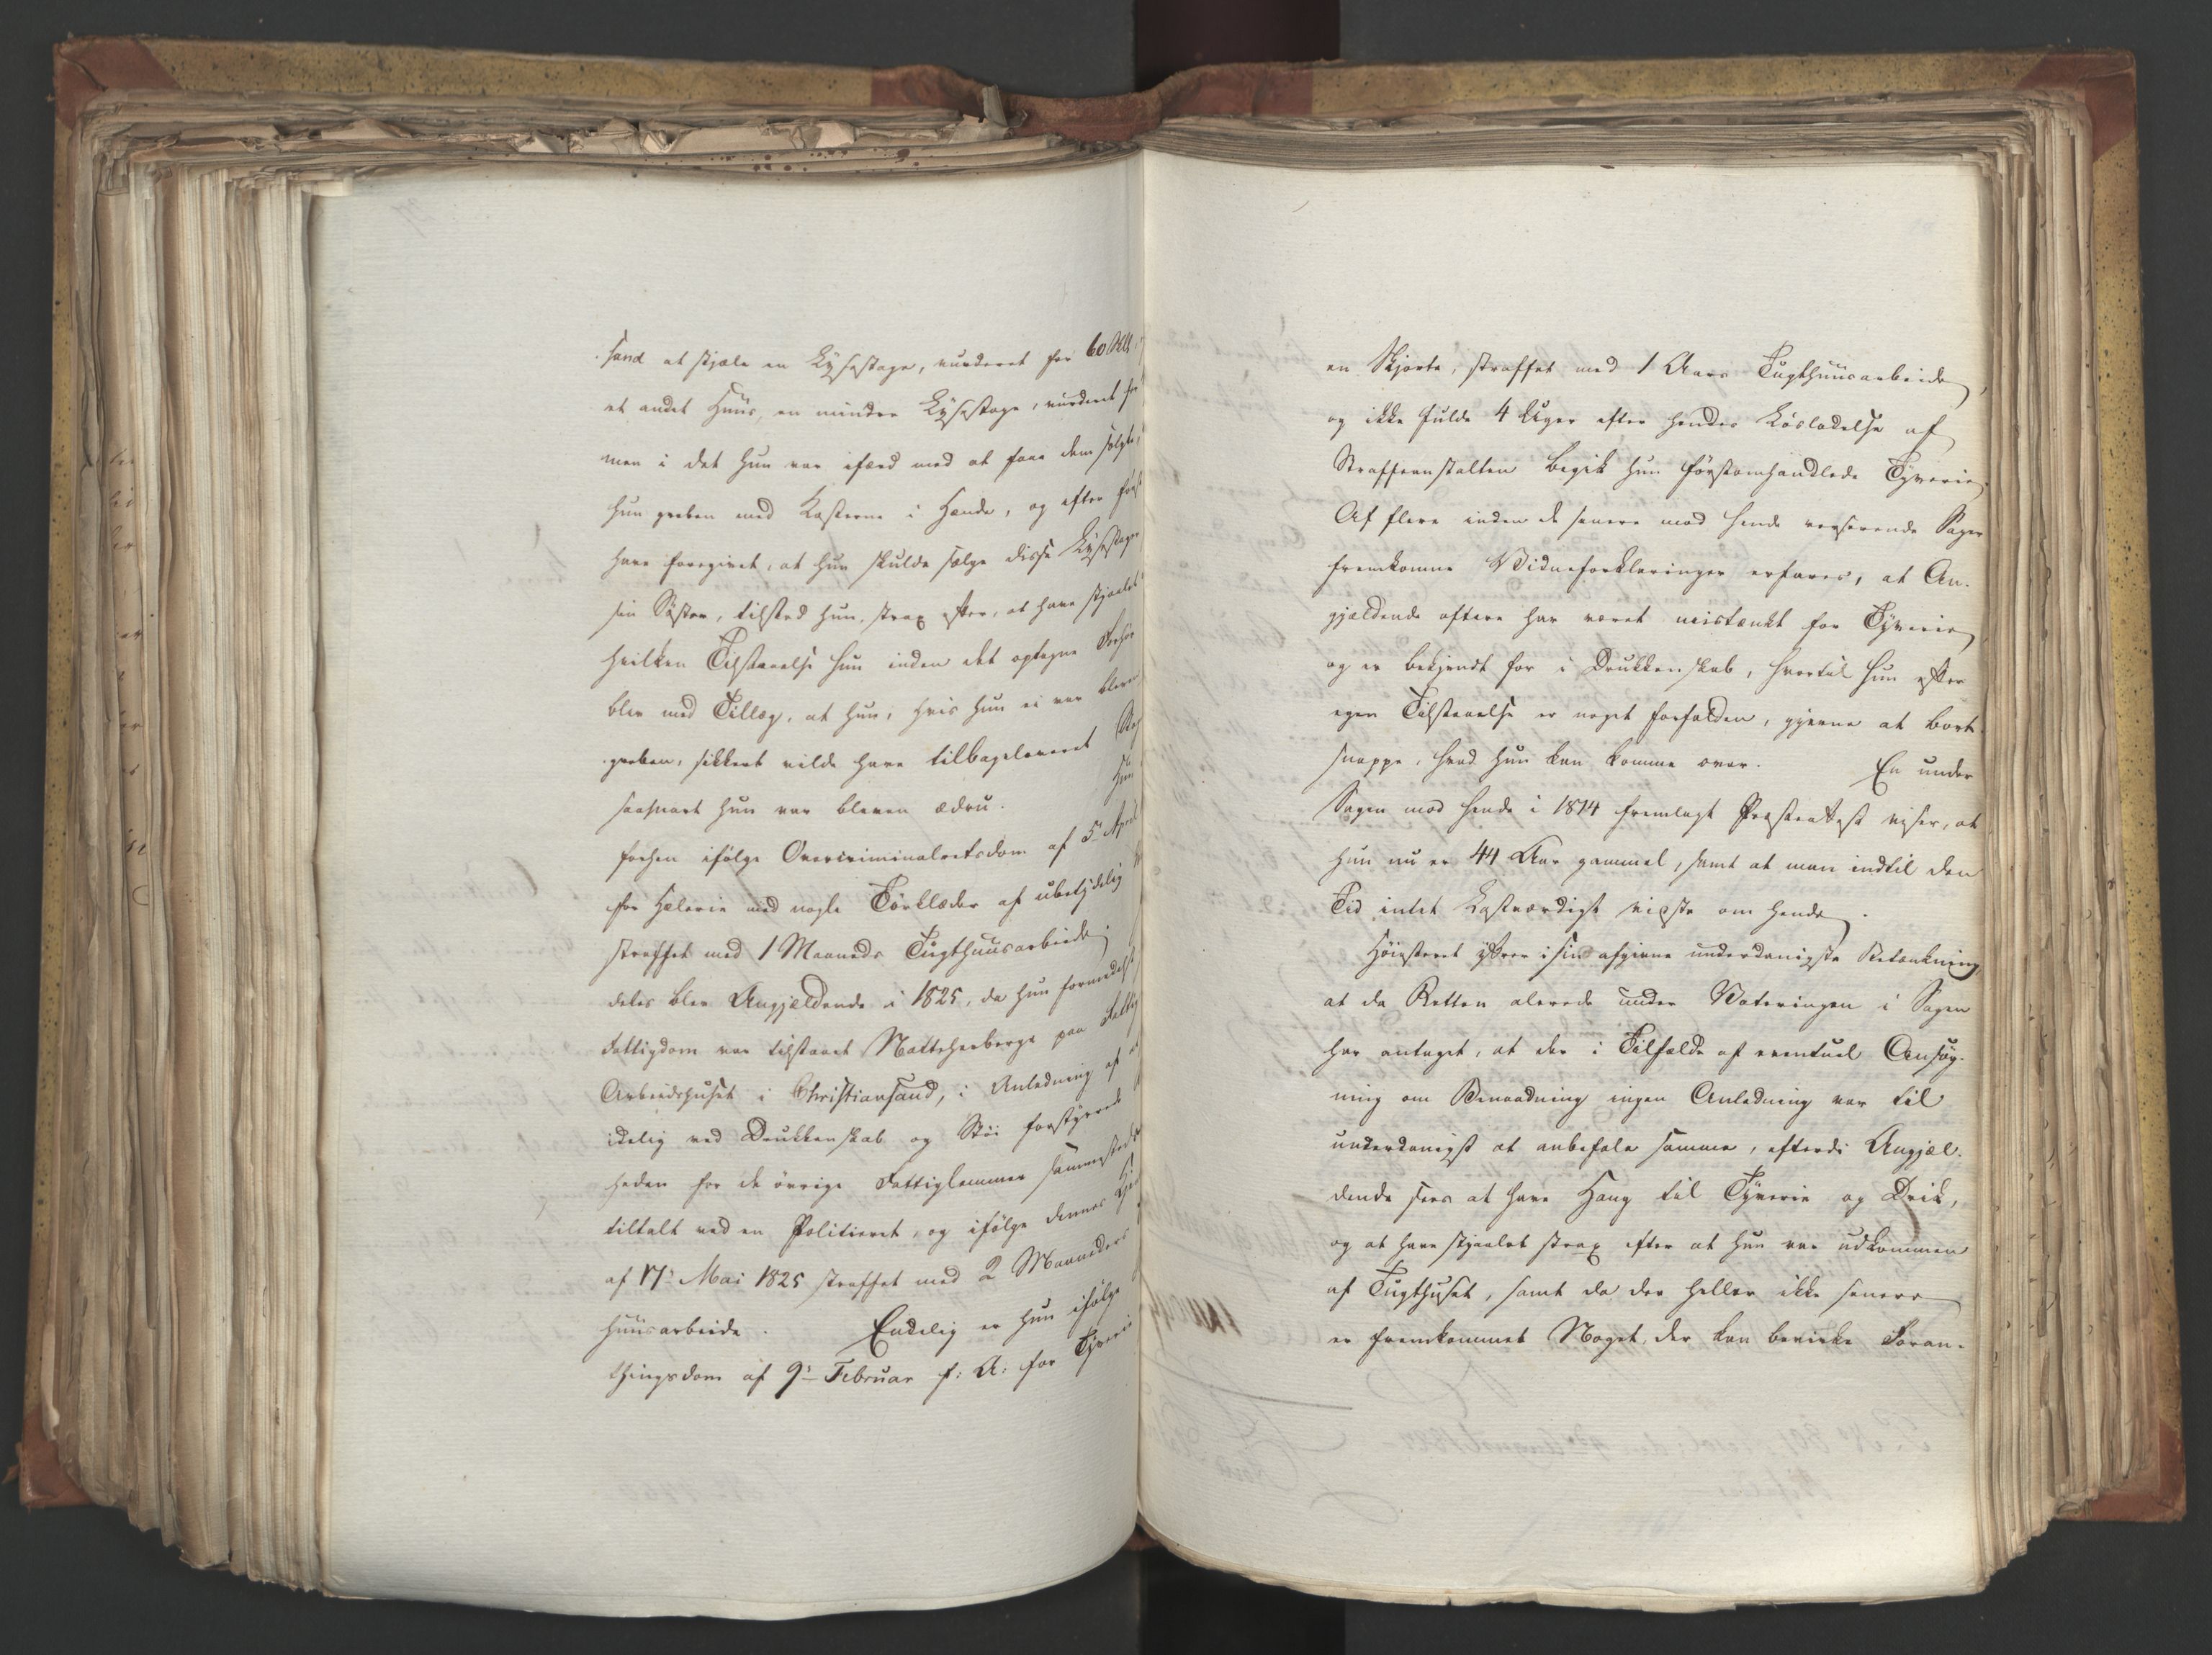 sand at stjæle en Lysestage, vurderet for 60
et andet Huus, en mindre Lysestage, vurderet for
men i det hun var ifærd med at faae dem solgte,
hun greben med Kosterne i Hænde, og efter først
have foregivet, at hun skulde sælge disse Lysestager
sin Søster, tilstod hun, strax efter, at have stjaalet
hvilken Tilstaaelse hun inden det optagne Forhør
blev med Tillæg, at hun, hvis hun ei var bleven
greben, sikkert vilde have tilbageleveret
saasnart hun var bleven ædru. Hun
forhen ifølge Overcriminalretsdom af 5te April
for Hæleri med nogle Tørklæder af ubetydelig
straffet med 1 Maaneds Tugthuusarbeide.
deles blev Angjældende i 1825, da hun formedelst
Fattigdom var tilstaaet Natteherberge paa Fattig
Arbeidshuset i Christiansand, i Anledning af at
idelig ved Drukkenskab og Støi forstyrrede
heden for de øvrige Fattiglemmer sammesteds
tiltalt ved en Politieret, og ifølge dennes
af 17de Mai 1825 straffet med 2 Maaneders
Huusarbeide. Endelig er hun ifølge
thingsdom af 9de Februar f: A: for Tyverie
en Skjorte, straffet med 1 Aars Tugthuusarbeide,
og ikke fulde 4 Uger efter hendes Løsladelse af
Straffeanstalten begik hun førstomhandlede Tyverie.
Af flere inden de senere mod hende verserende Sager
fremkomne Vidneforklaringer erfares, at An-
gjældende oftere har været mistænkt for Tyverie,
og er bekjendt for i Drukkenskab, hvortil hun efter
egen Tilstaaelse er noget forfalden, gjerne at bort-
snappe, hvad hun kan komme over. En under
Sagen mod hende i 1814 fremlagt Præsteattest viser, at
hun nu er 44 Aar gammel, samt at man indtil den
Tid intet Lastværdigt vidste om hende.
Høiesteret yttrer i sin afgivne underdanigste Betænkning,
at da Retten alerede under Voteringen i Sagen
har antaget, at der i Tilfælde af eventuel Ansøg-
ning om Benaadning ingen Anledning var til
underdanigst at anbefale samme, efterdi Angjæl-
dende sees at have Hang til Tyverie og Drik,
og at have stjaalet strax efter at hun var udkommen
af Tugthuset, samt da der heller ikke senere
er fremkommet Noget, der kan bevirke Foran-